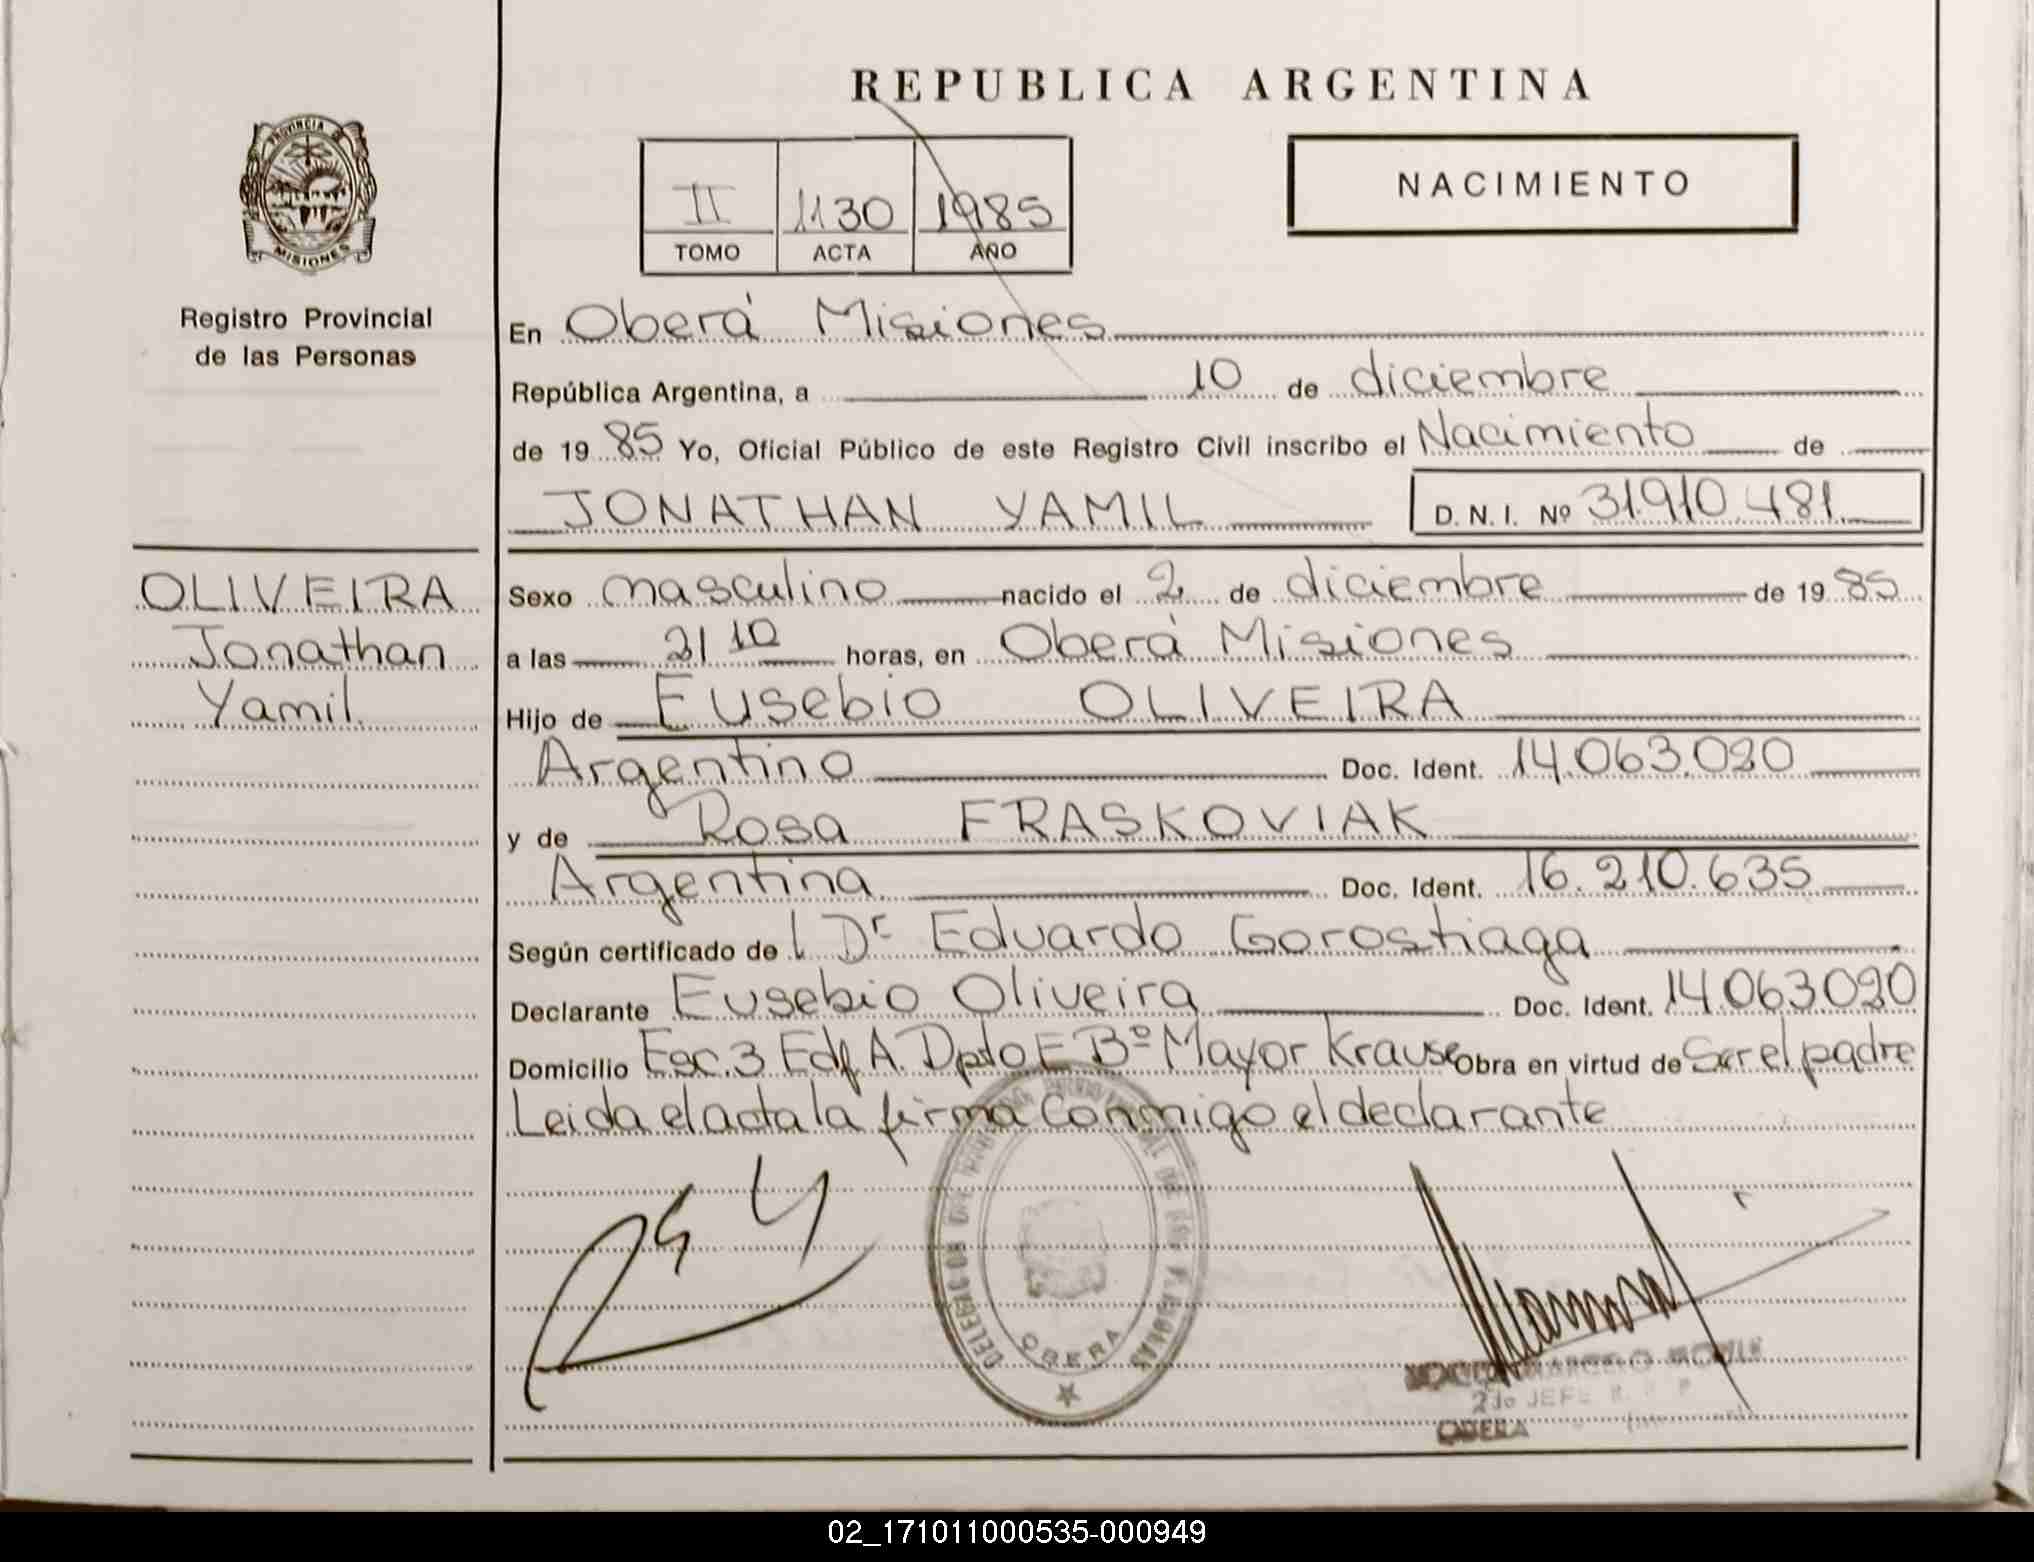 REPUBLICA ARGENTINA
PROVINCIA DE
MISIONES
Registro Provincial
de las Personas
NACIMIENTO
II 1130 1985
TOMO ACTA AÑO
En Oberá Misiones
República Argentina, a 10 de diciembre
de 19 85 Yo, Oficial Público de este Registro Civil inscribo el Nacimiento de
JONATHAN YAMIL D. N. I. Nº 31.910.481.
OLIVEIRA
Jonathan
Yamil.
Sexo masculino nacido el 2 de diciembre de 19 85
a las 21 10 horas, en Oberá Misiones
Hijo de Eusebio OLIVEIRA
Argentino Doc. Ident. 14.063.020
y de Rosa FRASKOVIAK
Argentina Doc. Ident. 16.210.635
Según certificado de l Dr Eduardo Gorostiaga
Declarante Eusebio Oliveira Doc. Ident. 14.063020
Domicilio Esc. 3 Edf A. Dpto E Bº Mayor Krause Obra en virtud de Ser el padre
Leida el acta la firma Conmigo el declarante
OBERA
MARCELO
2do JEFE R. P. P.
OBERA
02_171011000535-000949